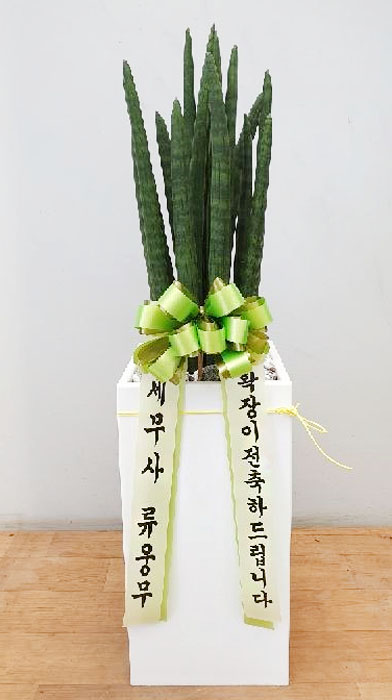 세무사 류웅무
확장이전축하드립니다